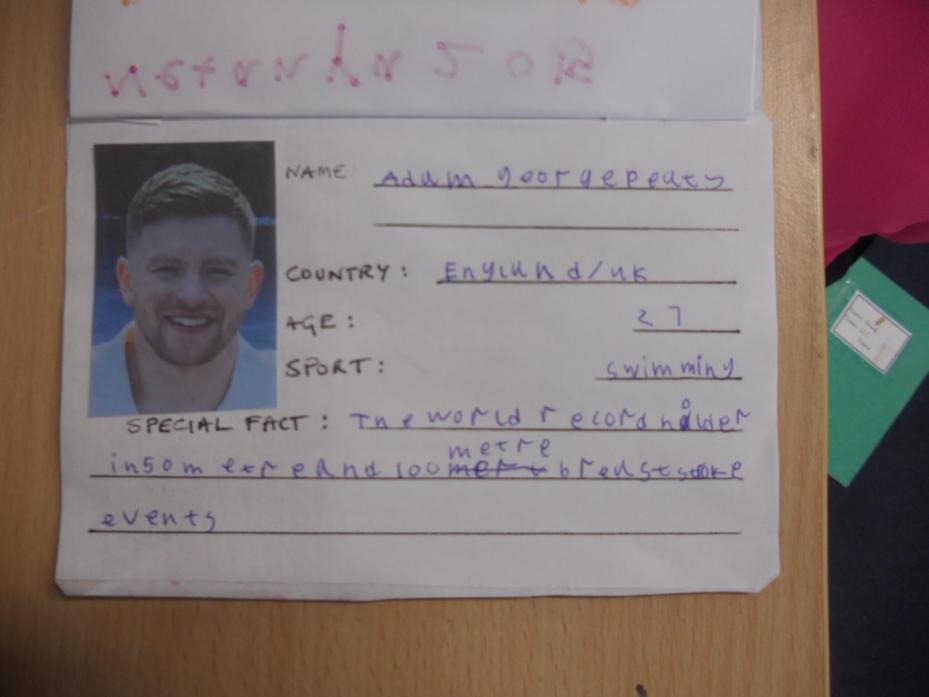 NAME: Adam georgepeaty
COUNTRY: England/uk
AGE: 27
SPORT: swimming
SPECIAL FACT: The world record holder
in50m etre and 100 metre breaststoke
events